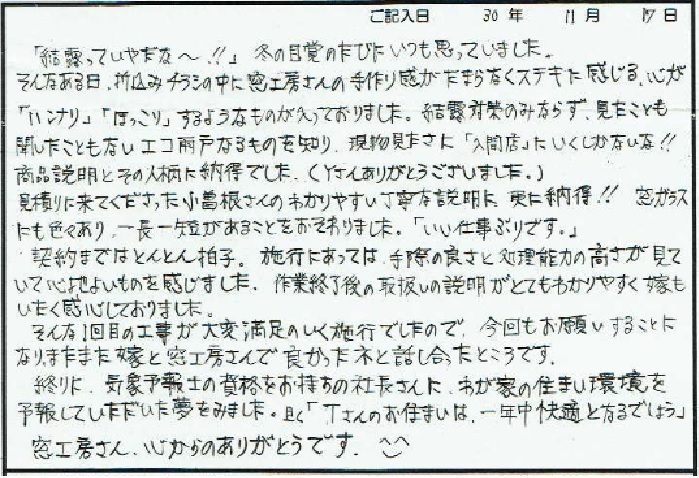 ご記入日 30年 11月 17日
「結露っていやだな〜!!」 冬の目覚のたびにいつも思っていました。
そんなある日、折込みチラシの中に窓工房さんの手作り感がたまらなくステキに感じる、心が
「ハンナリ」「ほっこり」するようなものが入っておりました。結露対策のみならず、見たことも
聞いたこともないエコ雨戸なるものを知り、現物見たさに「入間店」にいくしかないな!!
商品説明とその人柄に納得でした。(Yさんありがとうございました。)
見積りに来てくださった小曽根さんのわかりやすい丁寧な説明に、更に納得!! 窓ガラス
にも色々あり、一長一短があることをおそわりました。「いい仕事ぶりです。」
契約まではとんとん拍子。施行にあっては、手際の良さと処理能力の高さが見て
いて心地よいものを感じました。作業終了後の取扱いの説明がとてもわかりやすく嫁も
いたく感心しておりました。
そんな1回目の工事が大変満足のいく施行でしたので、今回もお願いすることに
なりまたまた嫁と窓工房さんで良かったネと話し合ったところです。
終りに、気象予報士の資格をお持ちの社長さんに、わが家の住まい環境を
予報していただいた夢をみました。曰く「Tさんのお住まいは、一年中快適となるでしょう」
窓工房さん、心からのありがとうです。